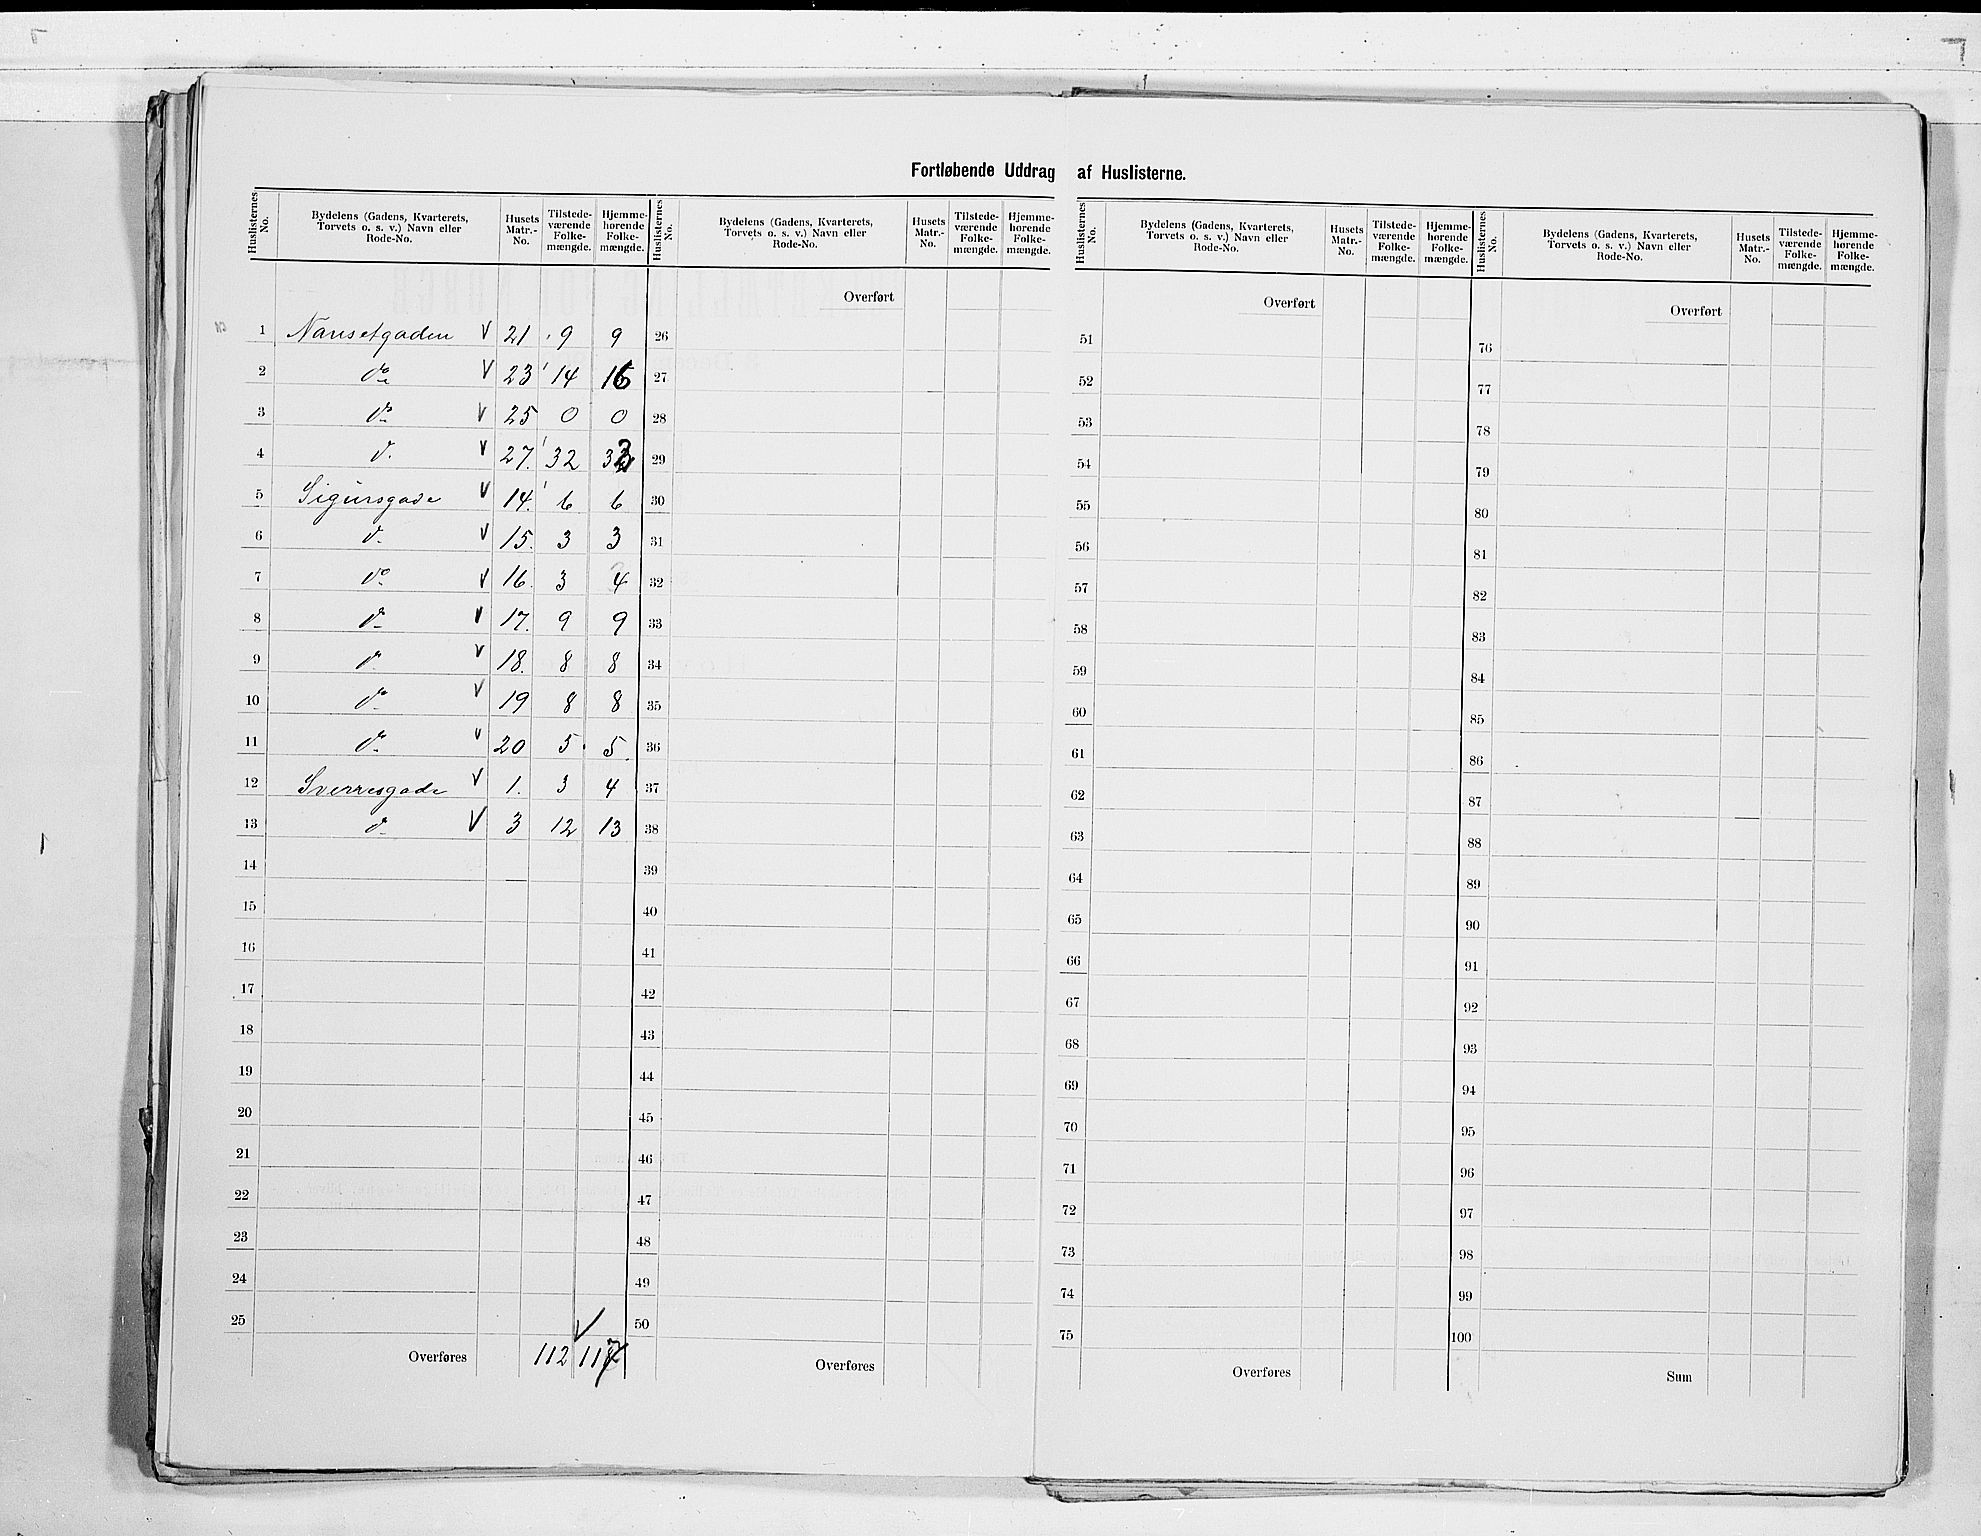 Fortløbende Uddrag af Huslisterne.
Huslisternes No. Bydelens (Gadens, Kvarterets, Torvets o. s. v.) Navn eller Rode-No. Husets Matr.-No. Tilstede-værende Folke-mængde. Hjemme-hørende Folke-mængde.
1 Nansetgaden V 21 9 9
2 do V 23 14 16
3 do V 25 0 0
4 do V 27. 32 33
5 Sigursgade V 14. 6 6
6 do V 15. 3 3
7 do V 16. 3 4
8 do V 17. 9 9
9 do V 18. 8 8
10 do V 19 8 8
11 do V 20 5 5
12 Sverresgade V 1. 3 4
13 do V 3 12 13
14
15
16
17
18
19
20
21
22
23
24
25
Overføres 112
Huslisternes No. Bydelens (Gadens, Kvarterets, Torvets o. s. v.) Navn eller Rode-No. Husets Matr.-No. Tilstede-værende Folke-mængde. Hjemme-hørende Folke-mængde.
Overført
26
27
28
29
30
31
32
33
34
35
36
37
38
39
40
41
42
43
44
45
46
47
48
49
50
Overføres
Huslisternes No. Bydelens (Gadens, Kvarterets, Torvets o. s. v.) Navn eller Rode-No. Husets Matr.-No. Tilstede-værende Folke-mængde. Hjemme-hørende Folke-mængde.
Overført
51
52
53
54
55
56
57
58
59
60
61
62
63
64
65
66
67
68
69
70
71
72
73
74
75
Overføres
Huslisternes No. Bydelens (Gadens, Kvarterets, Torvets o. s. v.) Navn eller Rode-No. Husets Matr.-No. Tilstede-værende Folke-mængde. Hjemme-hørende Folke-mængde.
Overført
76
77
78
79
80
81
82
83
84
85
86
87
88
89
90
91
92
93
94
95
96
97
98
99
100
Sum